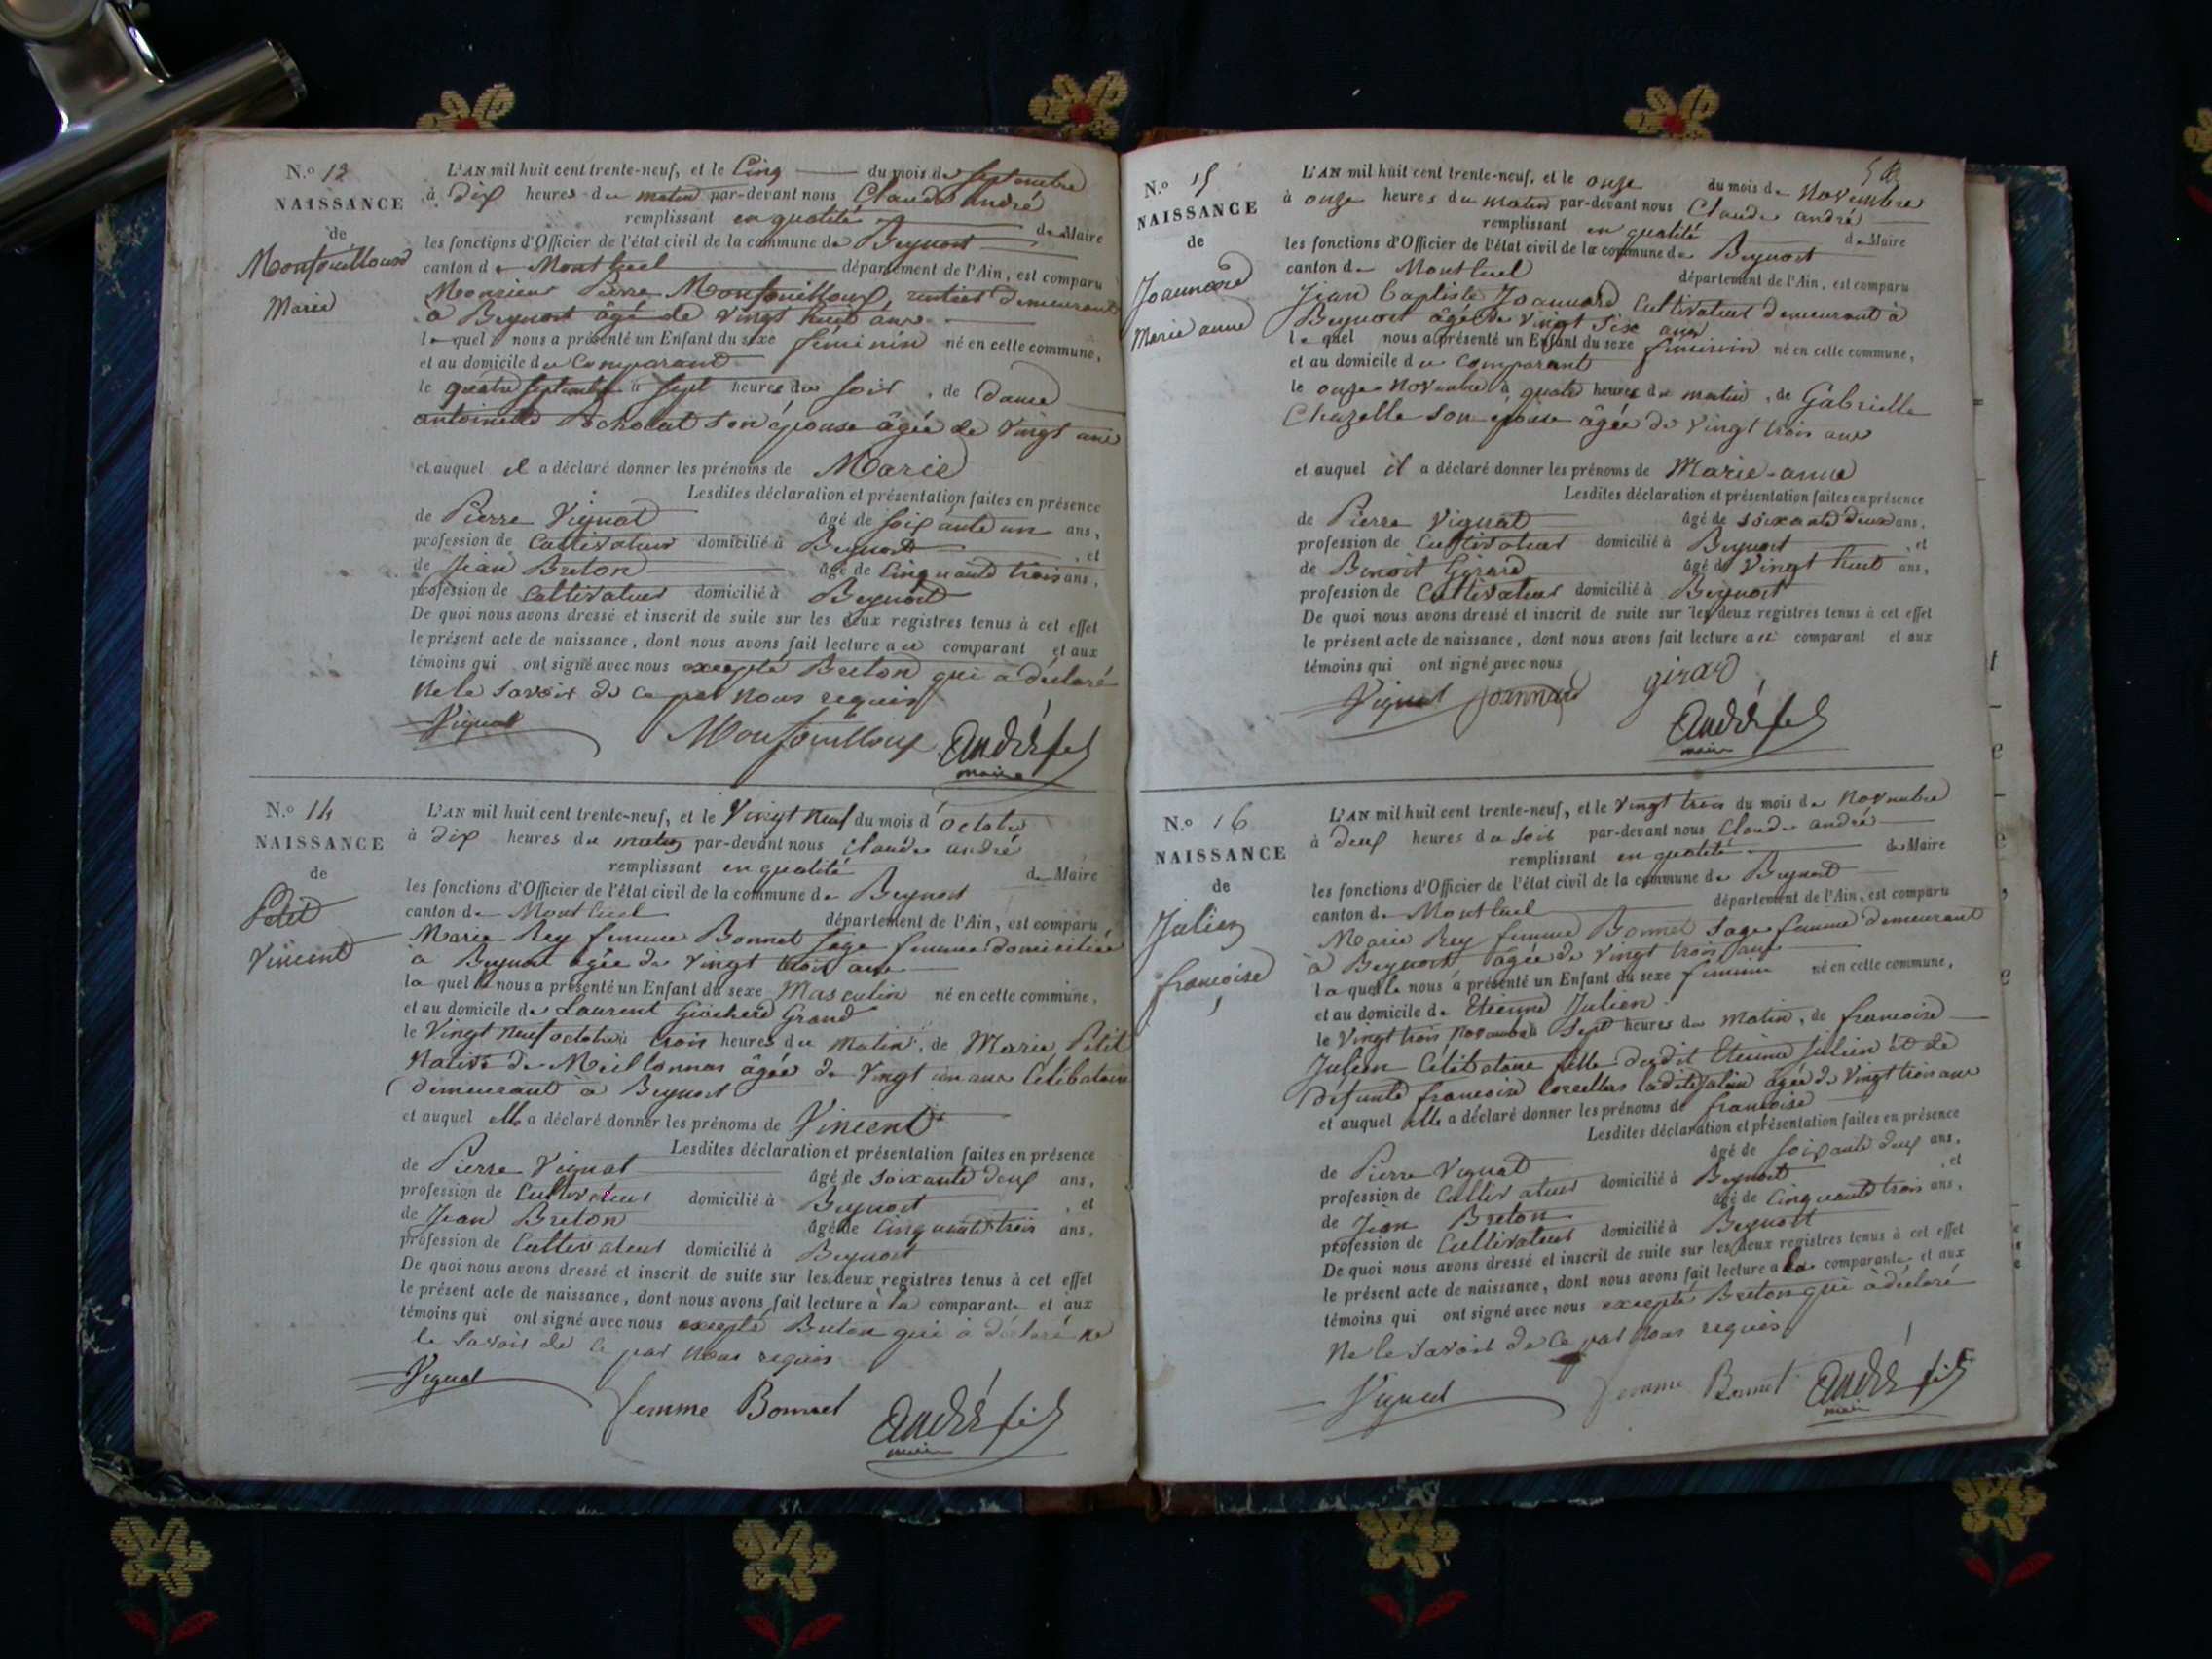 N.o 12
NAISSANCE
de
Monfouilloux
Marie
L'AN mil huit cent trente-neuf, et le Cinq du mois de Septembre
à dix heures du matin par-devant nous Claude andré
remplissant en qualité de Maire
les fonctions d'Officier de l'état civil de la commune de Beynost
canton de Montluel département de l'Ain, est comparu
Monsieur Pierre Monfouilloux, rentier demeurant
à Beynost âgé de vingt huit ans
lequel nous a présenté un Enfant du sexe féminin né en cette commune,
et au domicile du Comparant
le quatre septembre à sept heures du soir, de Dame
antoinette Acholat son épouse âgée de vingt ans
et auquel il a déclaré donner les prénoms de Marie
Lesdites déclaration et présentation faites en présence
de Pierre Vignat âgé de soixante un ans,
profession de Cultivateur domicilié à Beynost, et
de Jean Breton âgé de Cinquante trois ans,
profession de Cultivateur domicilié à Beynost
De quoi nous avons dressé et inscrit de suite sur les deux registres tenus à cet effet
le présent acte de naissance, dont nous avons fait lecture au comparant et aux
témoins qui ont signé avec nous excepté Breton qui a déclaré
ne le savoir de ce par nous requis
Vignat Monfouilloux André fils
maire
N.o 14
NAISSANCE
de
Petit
Vincent
L'AN mil huit cent trente-neuf, et le Vingt neuf du mois d'octobre
à dix heures du matin par-devant nous claude andré
remplissant en qualité de Maire
les fonctions d'Officier de l'état civil de la commune de Beynost
canton de Montluel département de l'Ain, est comparu
Marie Rey femme Bonnet sage femme domiciliée
à Beynost agée de vingt trois ans
laquelle nous a présenté un Enfant du sexe Masculin né en cette commune,
et au domicile de Laurent Guichard Grand
le Vingt neuf octobre à trois heures du matin, de Marie Petit
native de Meillonnas âgée de vingt un ans Célibataire
demeurant à Beynost
et auquel elle a déclaré donner les prénoms de Vincent
Lesdites déclaration et présentation faites en présence
de Pierre Vignat âgé de soixante deux ans,
profession de Cultivateur domicilié à Beynost, et
de Jean Breton âgé de Cinquante trois ans,
profession de Cultivateur domicilié à Beynost
De quoi nous avons dressé et inscrit de suite sur les deux registres tenus à cet effet
le présent acte de naissance, dont nous avons fait lecture à la comparante et aux
témoins qui ont signé avec nous excepté Breton qui a déclaré ne
le savoir de ce par nous requis
Vignat femme Bonnet André fils
maire
N.o 15
NAISSANCE
de
Joannard
Marie anne
L'AN mil huit cent trente-neuf, et le onze du mois de Novembre
à onze heures du matin par-devant nous Claude andré
remplissant en qualité de Maire
les fonctions d'Officier de l'état civil de la commune de Beynost
canton de Montluel département de l'Ain, est comparu
Jean baptiste Joannard Cultivateur demeurant à
Beynost âgé de vingt six ans
lequel nous a présenté un Enfant du sexe féminin né en cette commune,
et au domicile du comparant
le onze Novembre à quatre heures du matin, de Gabrielle
Chazelle son épouse âgée de vingt trois ans
et auquel il a déclaré donner les prénoms de Marie-anne
Lesdites déclaration et présentation faites en présence
de Pierre Vignat âgé de soixante deux ans,
profession de Cultivateur domicilié à Beynost, et
de Benoit Girard âgé de Vingt huit ans,
profession de Cultivateur domicilié à Beynost
De quoi nous avons dressé et inscrit de suite sur les deux registres tenus à cet effet
le présent acte de naissance, dont nous avons fait lecture au comparant et aux
témoins qui ont signé avec nous
Vignat Joannard girard
André fils
maire
N.o 16
NAISSANCE
de
Julien
françoise
L'AN mil huit cent trente-neuf, et le vingt trois du mois de Novembre
à deux heures du soir par-devant nous Claude andré
remplissant en qualité de Maire
les fonctions d'Officier de l'état civil de la commune de Beynost
canton de Montluel département de l'Ain, est comparu
Marie Rey femme Bonnet sage femme demeurant
à Beynost agée de vingt trois ans
laquelle nous a présenté un Enfant du sexe feminin né en cette commune,
et au domicile de Etienne Julien
le Vingt trois novembre à sept heures du matin, de françoise
Julien Célibataire fille dudit Etienne Julien et de
défunte françoise ladite Julien âgée de vingt trois ans
et auquel elle a déclaré donner les prénoms de françoise
Lesdites déclaration et présentation faites en présence
de Pierre Vignat âgé de soixante deux ans,
profession de Cultivateur domicilié à Beynost, et
de Jean Breton âgé de Cinquante trois ans,
profession de Cultivateur domicilié à Beynost
De quoi nous avons dressé et inscrit de suite sur les deux registres tenus à cet effet
le présent acte de naissance, dont nous avons fait lecture a la comparante et aux
témoins qui ont signé avec nous excepté Breton qui a déclaré
ne le savoir de ce par nous requis
Vignat femme Bonnet André fils
maire